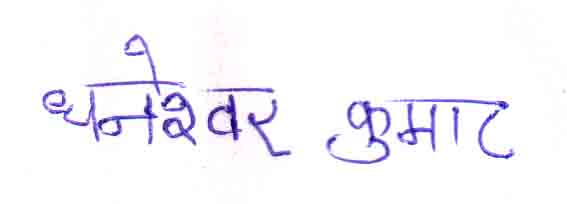 धनेश्वर कुमार